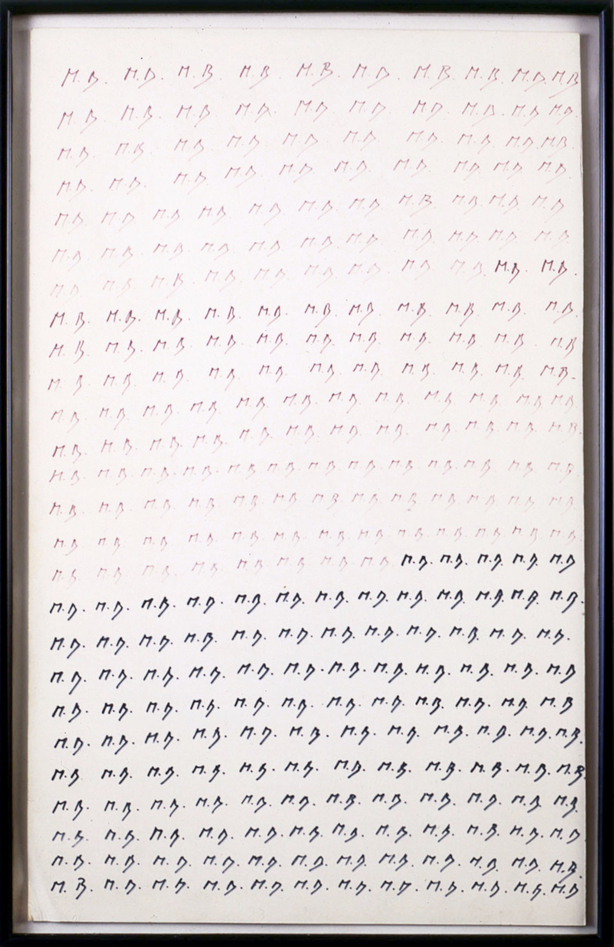 M.B. M.B. M.B. M.B. M.B. M.B. M.B. M.B. M.B. M.B.
M.B. M.B. M.B. M.B. M.B. M.B. M.B. M.B. M.B. M.B.
M.B. M.B. M.B. M.B. M.B. M.B. M.B. M.B. M.B. M.B.
M.B. M.B. M.B. M.B. M.B. M.B. M.B. M.B. M.B. M.B.
M.B. M.B. M.B. M.B. M.B. M.B. M.B. M.B. M.B. M.B. M.B.
M.B. M.B. M.B. M.B. M.B. M.B. M.B. M.B. M.B. M.B. M.B.
M.B. M.B. M.B. M.B. M.B. M.B. M.B. M.B. M.B. M.B. M.B.
M.B. M.B. M.B. M.B. M.B. M.B. M.B. M.B. M.B. M.B. M.B.
M.B. M.B. M.B. M.B. M.B. M.B. M.B. M.B. M.B. M.B. M.B.
M.B. M.B. M.B. M.B. M.B. M.B. M.B. M.B. M.B. M.B. M.B.
M.B. M.B. M.B. M.B. M.B. M.B. M.B. M.B. M.B. M.B. M.B. M.B.
M.B. M.B. M.B. M.B. M.B. M.B. M.B. M.B. M.B. M.B. M.B. M.B.
M.B. M.B. M.B. M.B. M.B. M.B. M.B. M.B. M.B. M.B. M.B. M.B. M.B.
M.B. M.B. M.B. M.B. M.B. M.B. M.B. M.B. M.B. M.B. M.B. M.B. M.B.
M.B. M.B. M.B. M.B. M.B. M.B. M.B. M.B. M.B. M.B. M.B. M.B. M.B.
M.B. M.B. M.B. M.B. M.B. M.B. M.B. M.B. M.B. M.B. M.B. M.B. M.B.
M.B. M.B. M.B. M.B. M.B. M.B. M.B. M.B. M.B. M.B. M.B. M.B. M.B.
M.B. M.B. M.B. M.B. M.B. M.B. M.B. M.B. M.B. M.B. M.B. M.B.
M.B. M.B. M.B. M.B. M.B. M.B. M.B. M.B. M.B. M.B. M.B. M.B.
M.B. M.B. M.B. M.B. M.B. M.B. M.B. M.B. M.B. M.B. M.B. M.B.
M.B. M.B. M.B. M.B. M.B. M.B. M.B. M.B. M.B. M.B. M.B. M.B.
M.B. M.B. M.B. M.B. M.B. M.B. M.B. M.B. M.B. M.B. M.B. M.B.
M.B. M.B. M.B. M.B. M.B. M.B. M.B. M.B. M.B. M.B. M.B. M.B.
M.B. M.B. M.B. M.B. M.B. M.B. M.B. M.B. M.B. M.B. M.B. M.B.
M.B. M.B. M.B. M.B. M.B. M.B. M.B. M.B. M.B. M.B. M.B. M.B.
M.B. M.B. M.B. M.B. M.B. M.B. M.B. M.B. M.B. M.B. M.B. M.B.